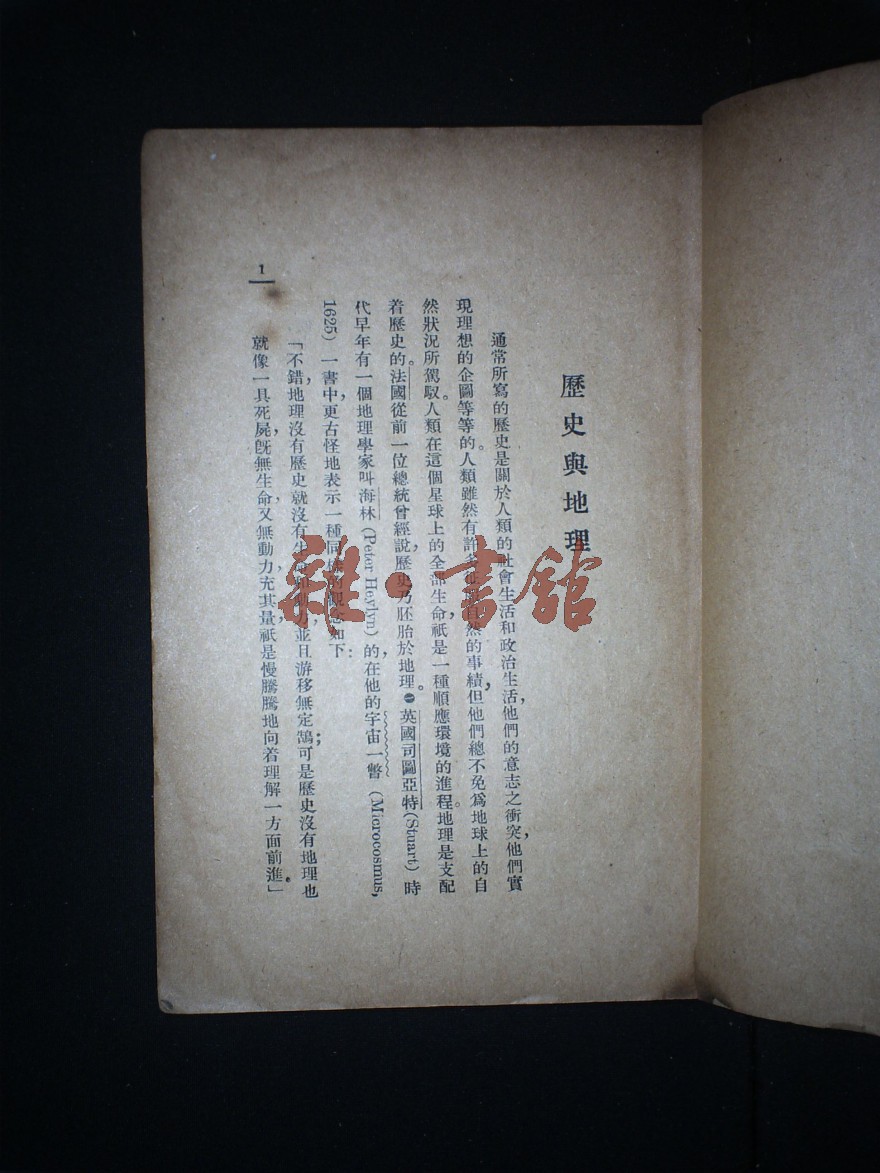 歷史與地理
通常所寫的歷史是關於人類的社會生活和政治生活，他們的意志之衝突，他們實
現理想的企圖等等的。人類雖然有許多征服自然的事績，但他們總不免爲地球上的自
然狀況所駕馭。人類在這個星球上的全部生命，祇是一種順應環境的進程。地理是支配
着歷史的。法國從前一位總統曾經說，歷史乃胚胎於地理。●英國司圖亞特(Stuart)時
代早年有一個地理學家叫海林(Peter Heylyn)的，在他的宇宙一瞥(Microcosmus,
1625)一書中，更古怪地表示一種同樣的觀念如下：
「不錯，地理沒有歷史就沒有生命和動力，並且游移無定鵠；可是歷史沒有地理也
就像一具死屍，旣無生命，又無動力，充其量，祇是慢騰騰地向着理解一方面前進。」
1
雜·書館